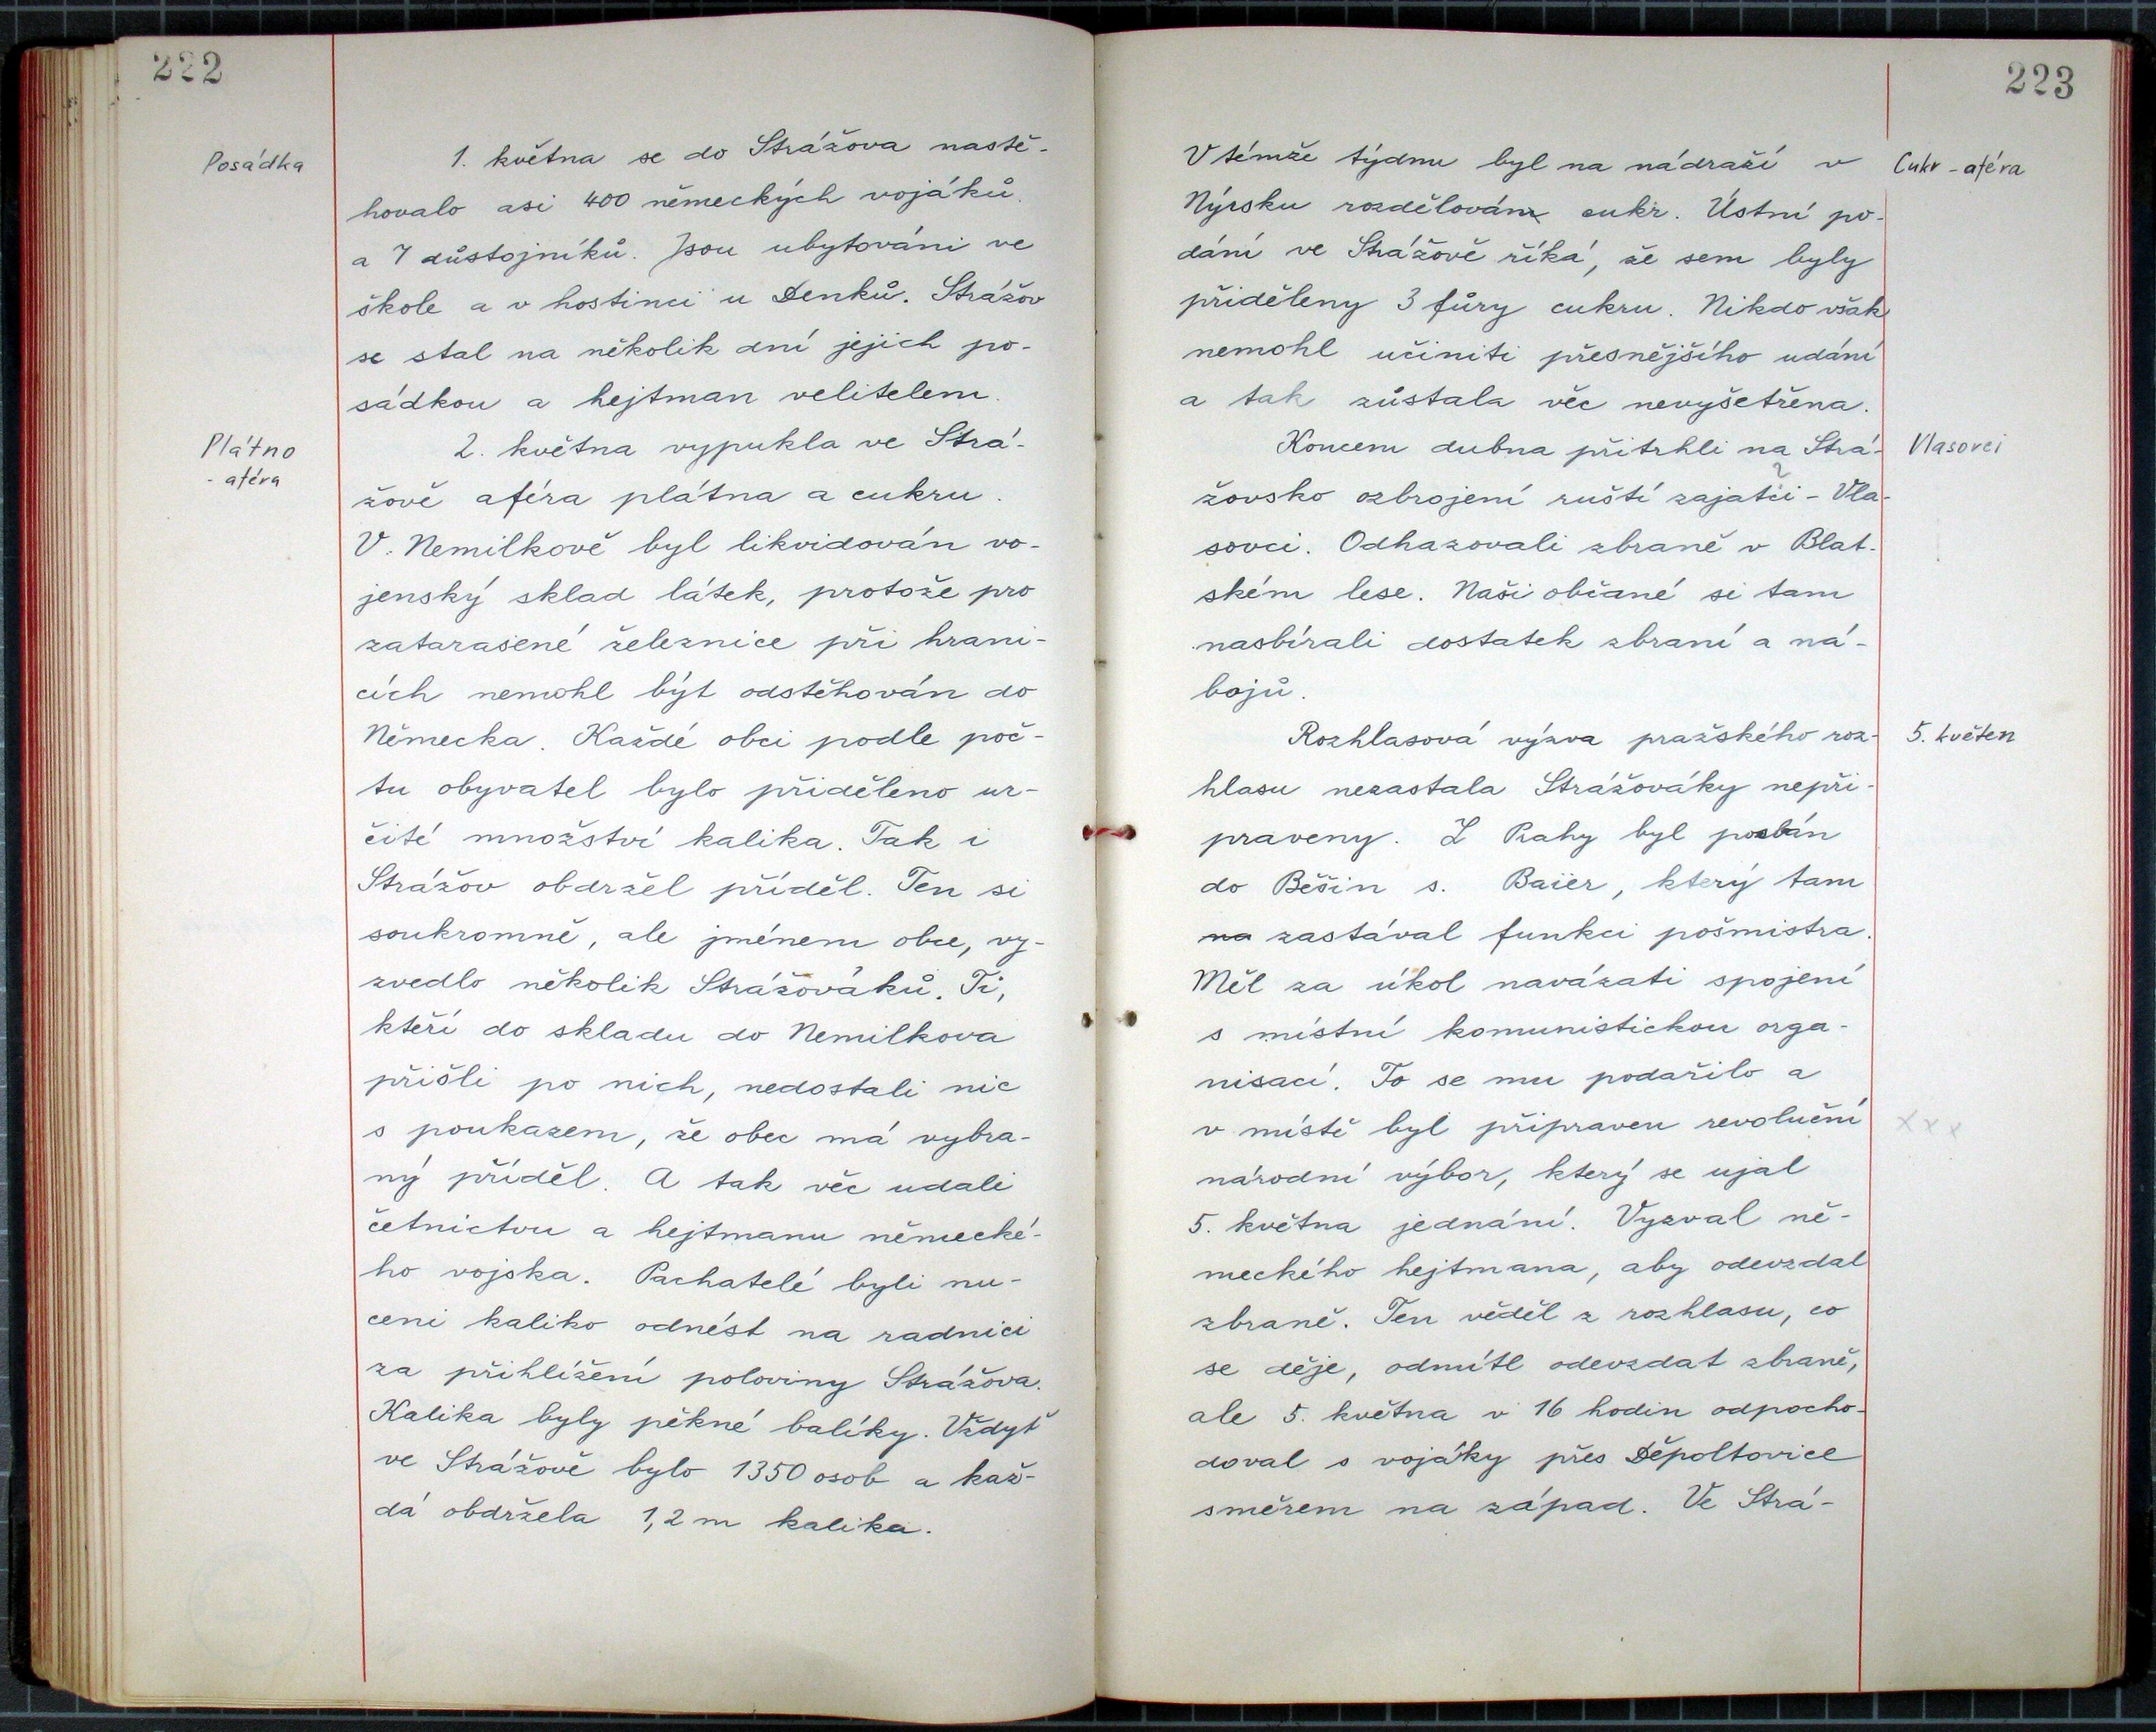 222
Posádka
1. května se do Strážova nastě-
hovalo asi 400 německých vojáků
a 7 důstojníků. Jsou ubytováni ve
škole a v hostinci u Denků. Strážov
se stal na několik dní jejich po-
sádkou a hejtman velitelem.
Plátno
- aféra
2. května vypukla ve Strá-
žově aféra plátna a cukru.
V. Nemilkově byl likvidován vo-
jenský sklad látek, protože pro
zatarasené železnice při hrani-
cích nemohl být odstěhován do
Německa. Každé obci podle poč-
tu obyvatel bylo přiděleno ur-
čité množství kalika. Tak i
Strážov obdržel příděl. Ten si
soukromně, ale jménem obce, vy-
zvedlo několik Strážováků. Ti,
kteří do skladu do Nemilkova
přišli po nich, nedostali nic
s poukazem, že obec má vybra-
ný příděl. A tak věc udali
četnictvu a hejtmanu německé-
ho vojska. Pachatelé byli nu-
ceni kaliko odnést na radnici
za přihlížení poloviny Strážova.
Kalika byly pěkné balíky. Vždyť
ve Strážově bylo 1350 osob a kaž-
dá obdržela 1,2 m kalika.
223
V témže týdnu byl na nádraží v
Cukr - aféra
Nýrsku rozdělován cukr. Ústní po-
dání ve Strážově říká, že sem byly
přiděleny 3 fůry cukru. Nikdo však
nemohl učiniti přesnějšího udání
a tak zůstala věc nevyšetřena.
Koncem dubna přitrhli na Strá-
Vlasovci
?
žovsko ozbrojení ruští zajatci - Vla-
sovci. Odhazovali zbraně v Blat-
ském lese. Naši občané si tam
nasbírali dostatek zbraní a ná-
bojů.
Rozhlasová výzva pražského roz-
5. květen
hlasu nezastala Strážováky nepři-
praveny. Z Prahy byl poslán
do Běšin s. Baiër, který tam
na zastával funkci pošmistra.
Měl za úkol navázati spojení
s místní komunistickou orga-
nisací. To se mu podařilo a
v místě byl připraven revoluční
xxx
národní výbor, který se ujal
5. května jednání. Vyzval ně-
meckého hejtmana, aby odevzdal
zbraně. Ten věděl z rozhlasu, co
se děje, odmítl odevzdat zbraně,
ale 5. května v 16 hodin odpocho-
doval s vojáky přes Děpoltovice
směrem na západ. Ve Strá-